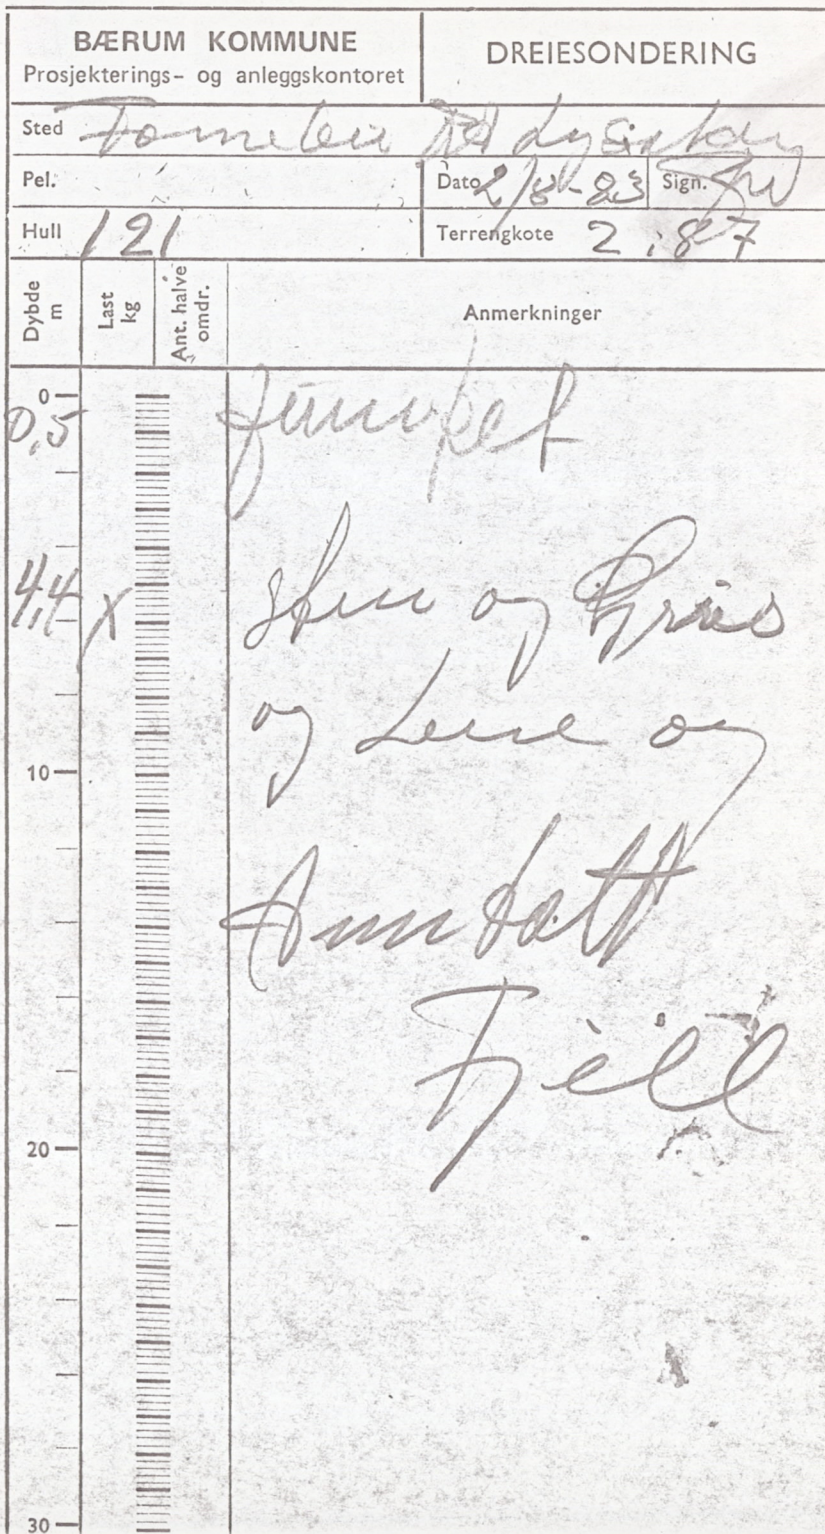 BÆRUM KOMMUNE
Prosjekterings- og anleggskontoret
DREIESONDERING
Sted Fornebu
Pel.
Dato 2/8-83 Sign.
Hull 121
Terrengkote 2.87
Dybde m
Last kg
Ant. halve omdr.
Anmerkninger
0
0,5
4,4 x
sten og Grus
og Leire og
antatt
Fjell
10
20
30